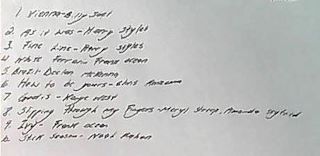 1 Vienna - Billy Joel
2. As it was - Harry Styles
3. Fine Line - Harry Styles
4. White Ferrari Frank ocean
5. Brazil Declan McKenna
6. How to be yours - Chris
7 - Kanye West
8. Slipping Through my Fingers - Meryl Streep, Amanda Seyfried
9. Ivy - Frank ocean
Stick season - Noah Kahan